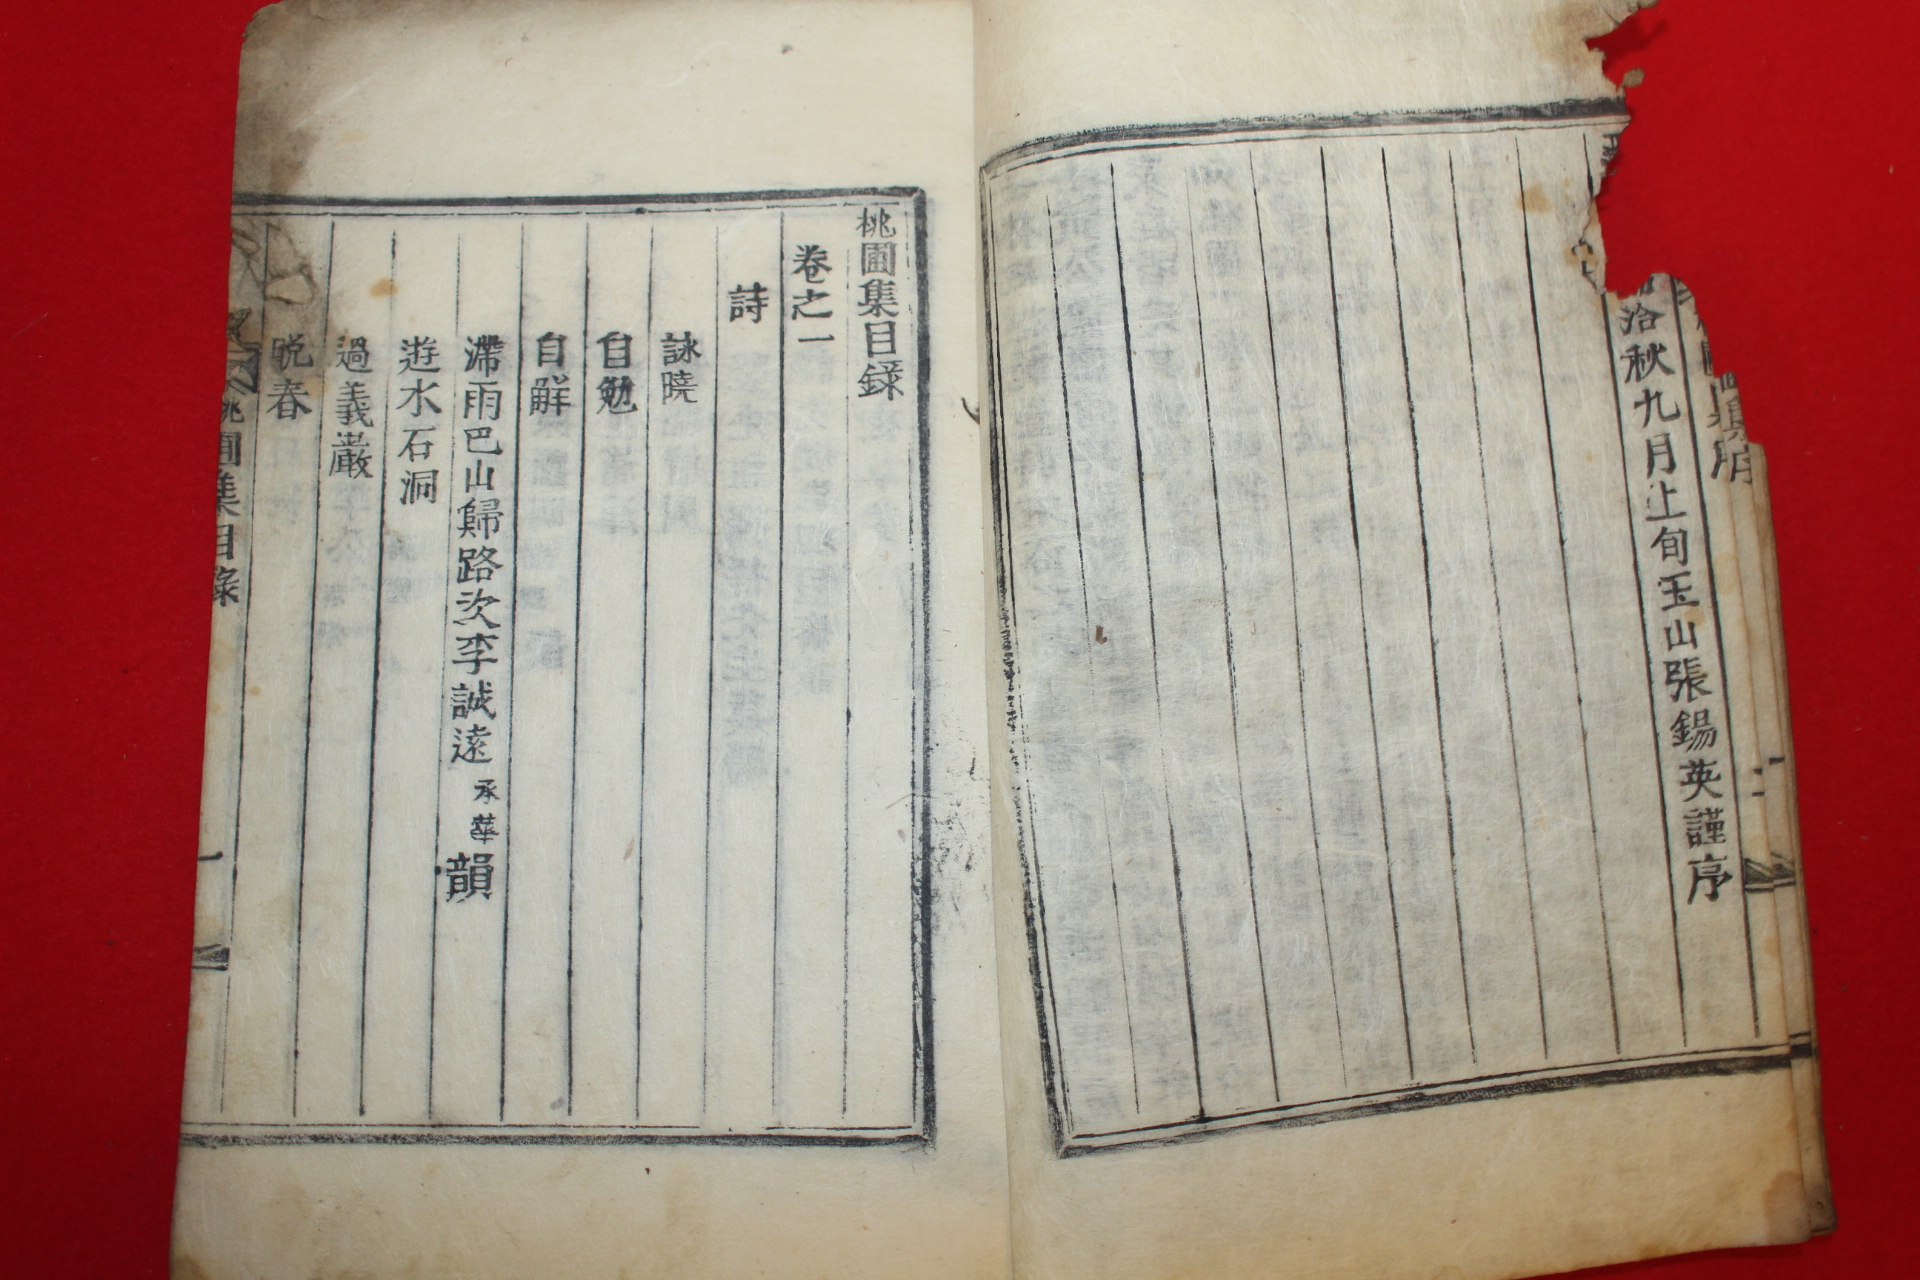 洽秋九月上旬玉山張錫英謹序
桃圃集目錄
卷之一
詩
詠曉
自勉
自解
滯雨巴山歸路次李誠遠承華韻
遊水石洞
過義巖
晩春
桃圃集目錄
一